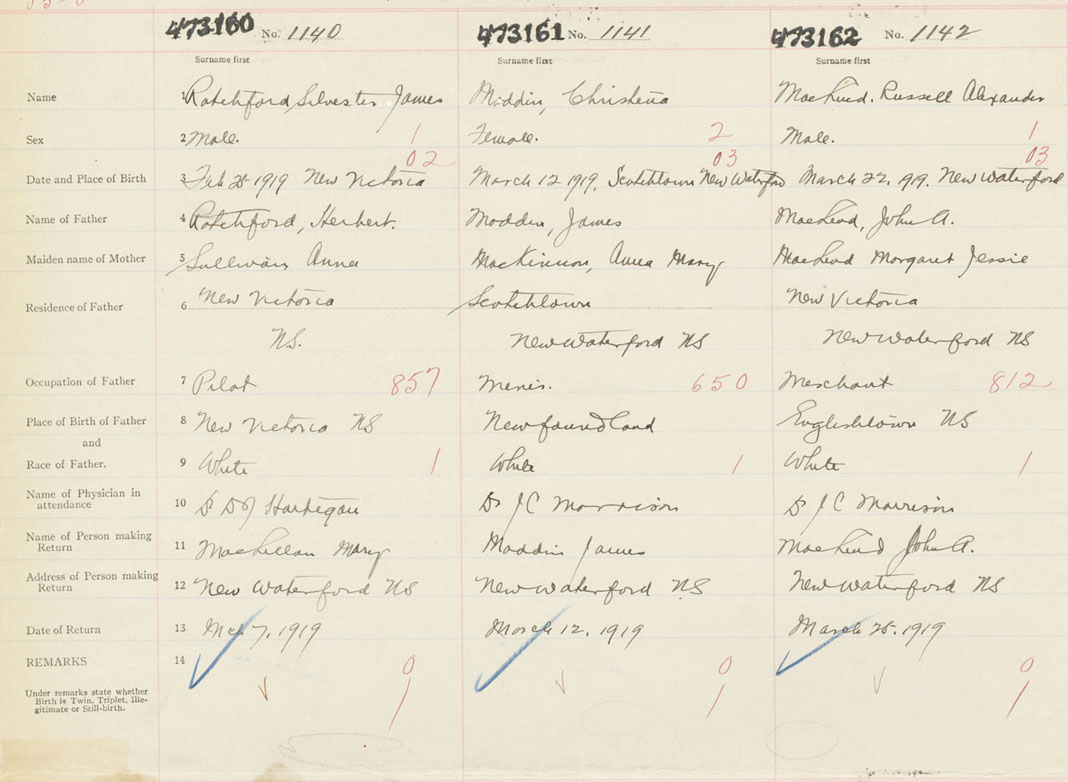 473160 No. 1140 473161 No. 1141 473162 No. 1142
Surname first Surname first Surname first
Name 1 Ratchford, Silvester James Christena Russell Alexander
Sex 2 Male. 1 Female. 2 Male. 1
02 03 03
Date and Place of Birth 3 Feb 28 1919 New Victoria March 12 1919, Scotchtown New Waterford March 22, 1919. New Waterford
Name of Father 4 Ratchford, Herbert. Moddin, James MacLeod, John A.
Maiden name of Mother 5 Sullivan Anna MacKinnon, Anna Mary MacLeod Margaret Jessie
Residence of Father 6 New Victoria Scotchtown New Victoria
NS. New Waterford NS New Waterford NS
Occupation of Father 7 Pilot 857 650 Merchant 812
Place of Birth of Father 8 New Victoria NS Newfoundland Englishtown NS
and
Race of Father. 9 White 1 White 1 White 1
Name of Physician in
attendance 10 Dr J C Morrison Dr J C Morrison
Name of Person making
Return 11 MacLellan Mary Maddin James MacLeod John A.
Address of Person making
Return 12 New Waterford NS New Waterford NS New Waterford NS
Date of Return 13 Mch 7, 1919 March 12, 1919 March 28, 1919
REMARKS 14 0 0 0
Under remarks state whether
Birth is Twin, Triplet, Ille-
gitimate or Still-birth. 1 1 1